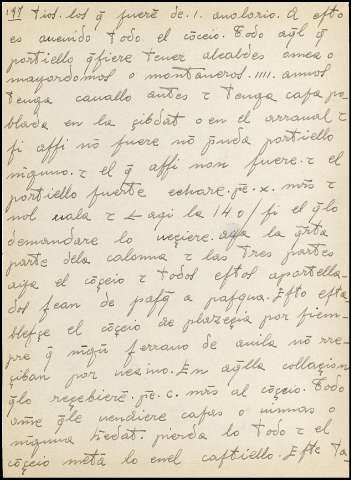 197 tios. los q̃ fuerē de .1. anolario. A esto
es auenido todo el cōceio. Todo aq̃l q̃
portiello q̃siere tener alcaldes ome o
mayordomos o montaneros .IIII. annos
tenga cauallo antes τ tenga casa po-
blada en la çibdat o en el arraual τ
si assi nō fuere nō p̃nda portiello
ninguno. τ el q̃ assi non fuere. τ el
portiello fuerte echare. pẽ. x. mrs̄ τ
nol uala τ ← aqi la 140/ si el q̃lo
demandare lo ueçiere. aya la q̃rta
parte dela calonna τ las tres partes
aya el cōçeio τ todos estos aportella-
dos sean de pasq̃ a pasqua. Esto esta-
blesçe el cōçeio de plazeçia por siem-
pre q̃ nīgū serrano de auila nō rre-
çiban por ueçino. En aq̃lla collaçion
q̃lo reçebierē. pẽ. c. mrs̄ al cōçeio. Todo
om̄e q̃le uendiere casas o uinnas o
ninguna h̄edat. pierda lo todo τ el
cōçeio metā lo enel castiello. Este ta-